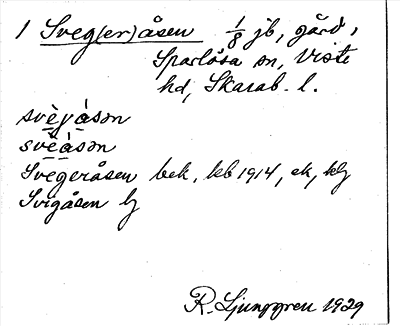 1 Sveg(er)åsen 1/8 jb, gård,
Sparlösa sn, Viste
hd, Skarab. l.
svèɣàsən
svèàsən
Svegeråsen bek, kb 1914, ek, hlg
Svigåsen lj
R. Ljunggren 1929